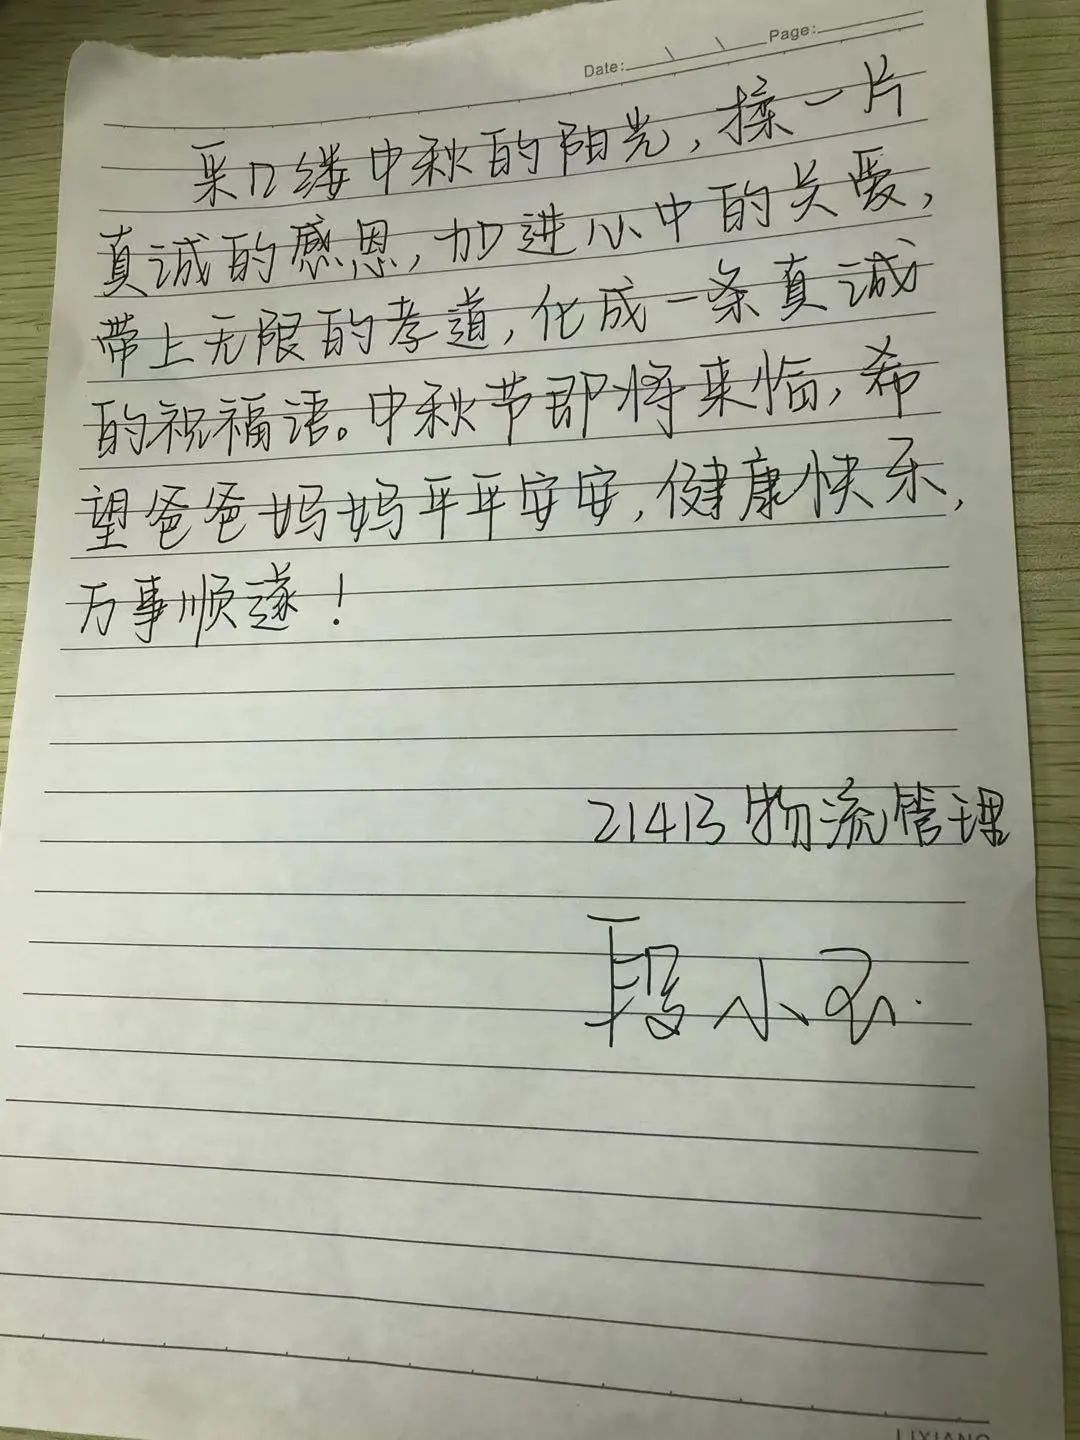 Date: \ \ Page:
采几缕中秋的阳光，揉一片
真诚的感恩，加进心中的关爱，
带上无限的孝道，化成一条真诚
的祝福语。中秋节即将来临，希
望爸爸妈妈平平安安，健康快乐，
万事顺遂！
21413物流管理
段小
LIXIANG